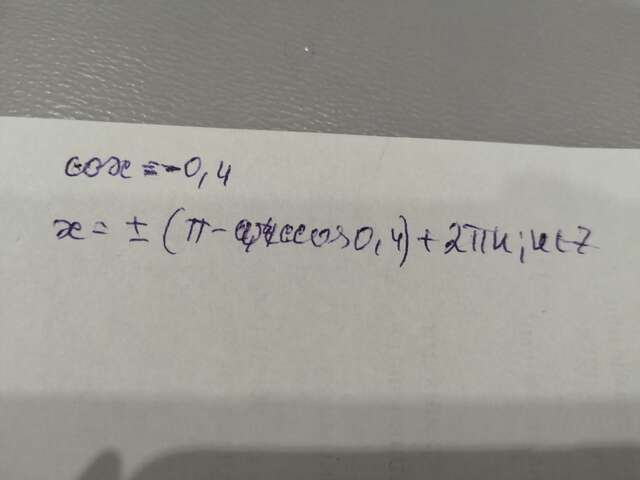 cosx = -0,4
x = ± (π - arccos0,4) + 2πn; n∈Z